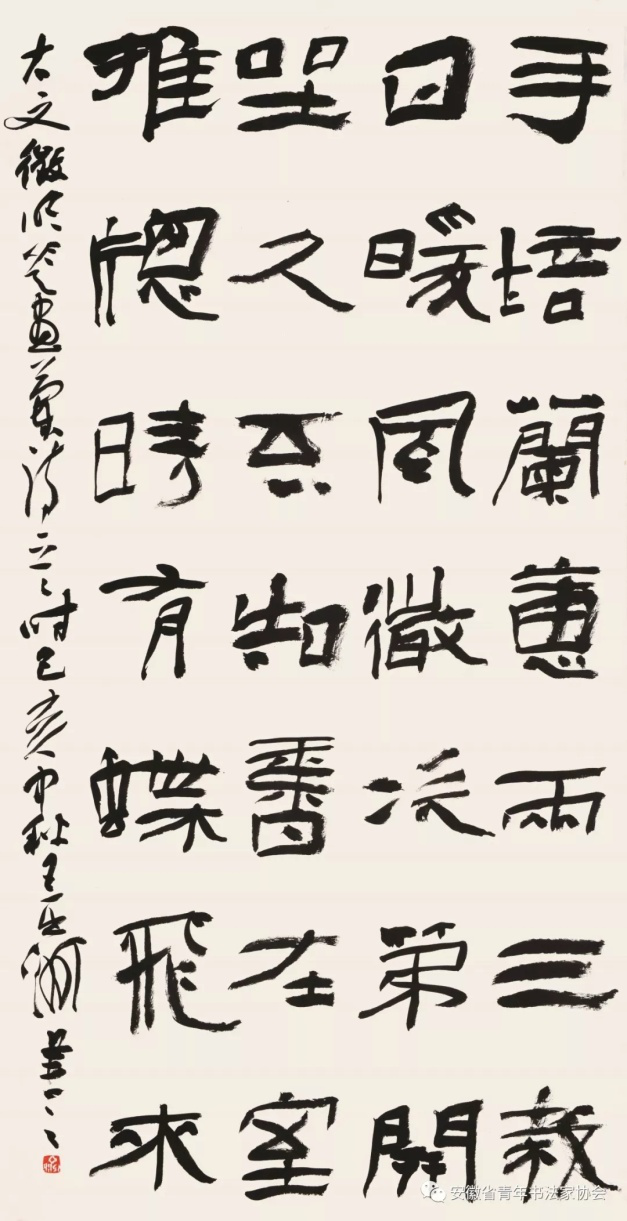 手培蘭蕙兩三栽
日暖風微次第開
坐久不知香在室
推窗時有蝶飛來
右文徵明
畫蘭詩一
時己亥中秋王
書
安徽省青年书法家协会